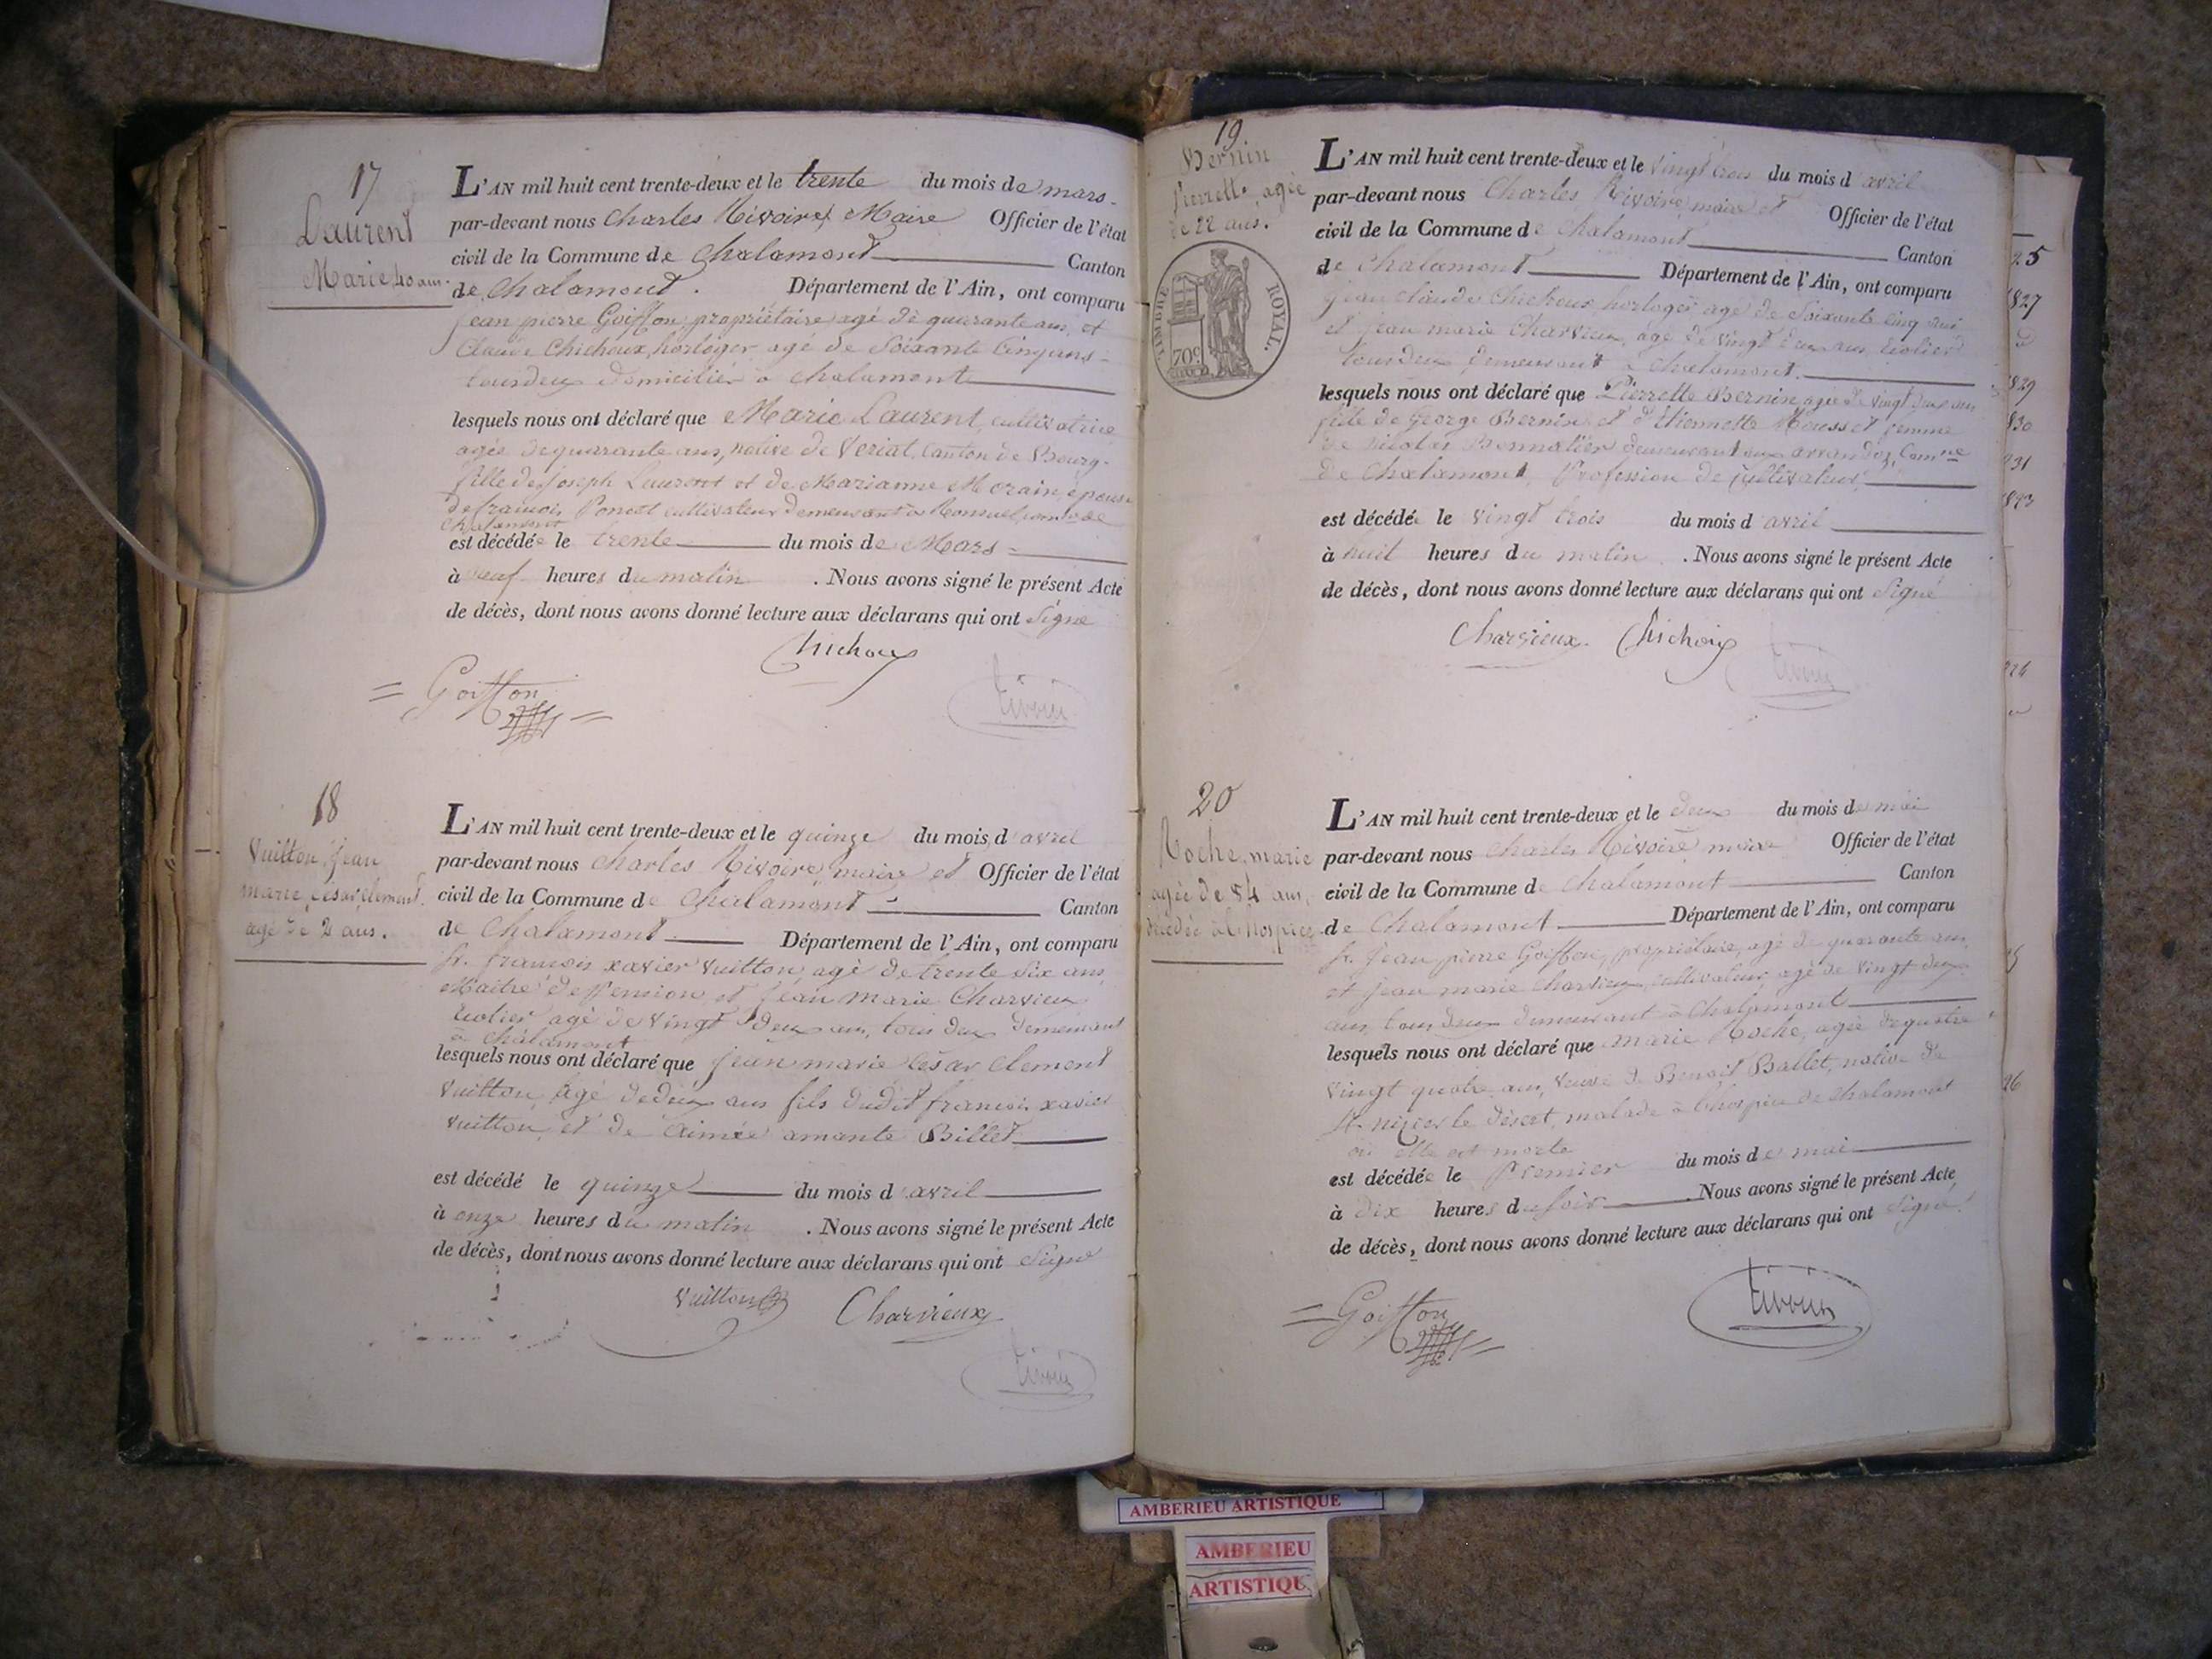 17
Laurent
Marie, 40 ans.
L'AN mil huit cent trente-deux et le trente du mois de mars.
par-devant nous Charles Rivoire, Maire Officier de l'état
civil de la Commune de Chalamont Canton
de Chalamont. Département de l'Ain, ont comparu
Jean pierre Goiffon, propriétaire, agé de quarante ans, et
Claude Chichoux, horloger, agé de Soixante Cinq ans
tous deux domiciliés à Chalamont
lesquels nous ont déclaré que Marie Laurent, cultivatrice
agée de quarante ans, native de Veriat, Canton de Bourg
fille de Joseph Laurent et de Marianne Morain, épouse
de françois Poncet cultivateur demeurant à Ronsuel, comne de
Chalamont
est décédée le trente du mois de Mars
à neuf heures du matin . Nous avons signé le présent Acte
de décès, dont nous avons donné lecture aux déclarans qui ont Signé
Chichoux
Goiffon
18
Vuitton, Jean
marie, César, Clement.
agé de 2 ans.
L'AN mil huit cent trente-deux et le quinze du mois d'avril
par-devant nous Charles Rivoire, maire et Officier de l'état
civil de la Commune de Chalamont Canton
de Chalamont Département de l'Ain, ont comparu
Sr. françois xavier Vuitton, agé de trente Six ans
Maitre de Pension, et Jean Marie Charvieux
Ecolier agé de Vingt Deux ans, tous deux demeurant
à Chalamont
lesquels nous ont déclaré que Jean marie César Clement
Vuitton, Agé de deux ans fils dudit françois xavier
Vuitton, et de Aimée amante Billet
est décédé le quinze du mois d'avril
à onze heures du matin . Nous avons signé le présent Acte
de décès, dont nous avons donné lecture aux déclarans qui ont Signé
Vuitton Charvieux
19
Bernin
Pierrette, agée
de 22 ans.
TIMBRE ROYAL.
70c
L'AN mil huit cent trente-deux et le Vingt trois du mois d'avril
par-devant nous Charles Rivoire, maire et Officier de l'état
civil de la Commune de Chalamont Canton
de Chalamont Département de l'Ain, ont comparu
Jean Claude Chichoux, horloger agé de Soixante Cinq ans
et Jean marie Charvieux, agé de vingt deux ans, Ecolier
tous deux demeurant à Chalamont.
lesquels nous ont déclaré que Pierrette Bernin, agée de vingt deux ans
fille de George Bernin et d'Etiennette Mousset femme
de Nicolas demeurant aux Comne
de Chalamont, Profession de Cultivateur
est décédée le Vingt trois du mois d'avril
à huit heures du matin . Nous avons signé le présent Acte
de décès, dont nous avons donné lecture aux déclarans qui ont Signé
Charvieux. Chichoux
20
Roche, marie
agée de 84 ans,
décédée à l'hospice
L'AN mil huit cent trente-deux et le deux du mois de mai
par-devant nous Charles Rivoire, maire Officier de l'état
civil de la Commune de Chalamont Canton
de Chalamont Département de l'Ain, ont comparu
Sr. Jean pierre Goiffon, propriétaire, agé de quarante ans,
et Jean marie Charvieux, cultivateur, agé de Vingt deux
ans, tous deux demeurant à Chalamont
lesquels nous ont déclaré que Marie Roche, agée de quatre
Vingt quatre ans, veuve de Benoit Ballet, native de
St. nizier le désert, malade à l'hospice de Chalamont
où elle est morte
est décédée le Premier du mois de mai
à Dix heures du Soir . Nous avons signé le présent Acte
de décès, dont nous avons donné lecture aux déclarans qui ont Signé.
Goiffon
AMBERIEU ARTISTIQUE
AMBERIEU
ARTISTIQU